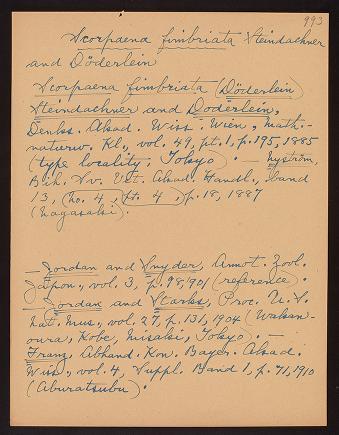 993
Scorpaena fimbriata Steindachner
and Döderlein
Scorpaena fimbriata (Döderlein)
Steindachner and Döderlein,
Denks. Akad. Wiss. Wien, Math.-
naturw. Kl., vol. 49, pt. 1, p. 195, 1885
(type locality: Tokyo). — Nyström,
Bih. Sv. Vet. Akad. Handl., band
13, (no. 4, pt. 4), p. 18, 1887
(Nagasaki).
— Jordan and Snyder, Annot. Zool.
Japon., vol. 3, p. 98, 1901 (reference).
— Jordan and Starks, Proc. U. S.
Nat. Mus., vol. 27, p. 131, 1904 (Wakan-
oura, Kobe, Misaki, Tokyo). —
Franz, Abhand. Kon. Bayer. Akad.
Wiss., vol. 4, Suppl. Band 1, p. 71, 1910
(Aburatsubu).